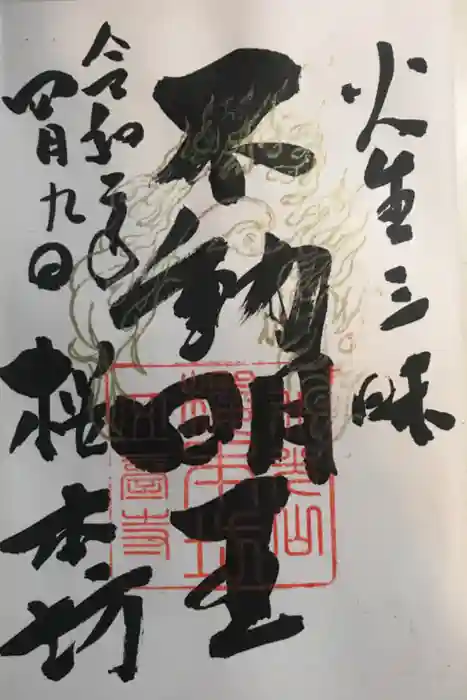 火生三昧
不動明王
令和二年
四月九日
桜本坊